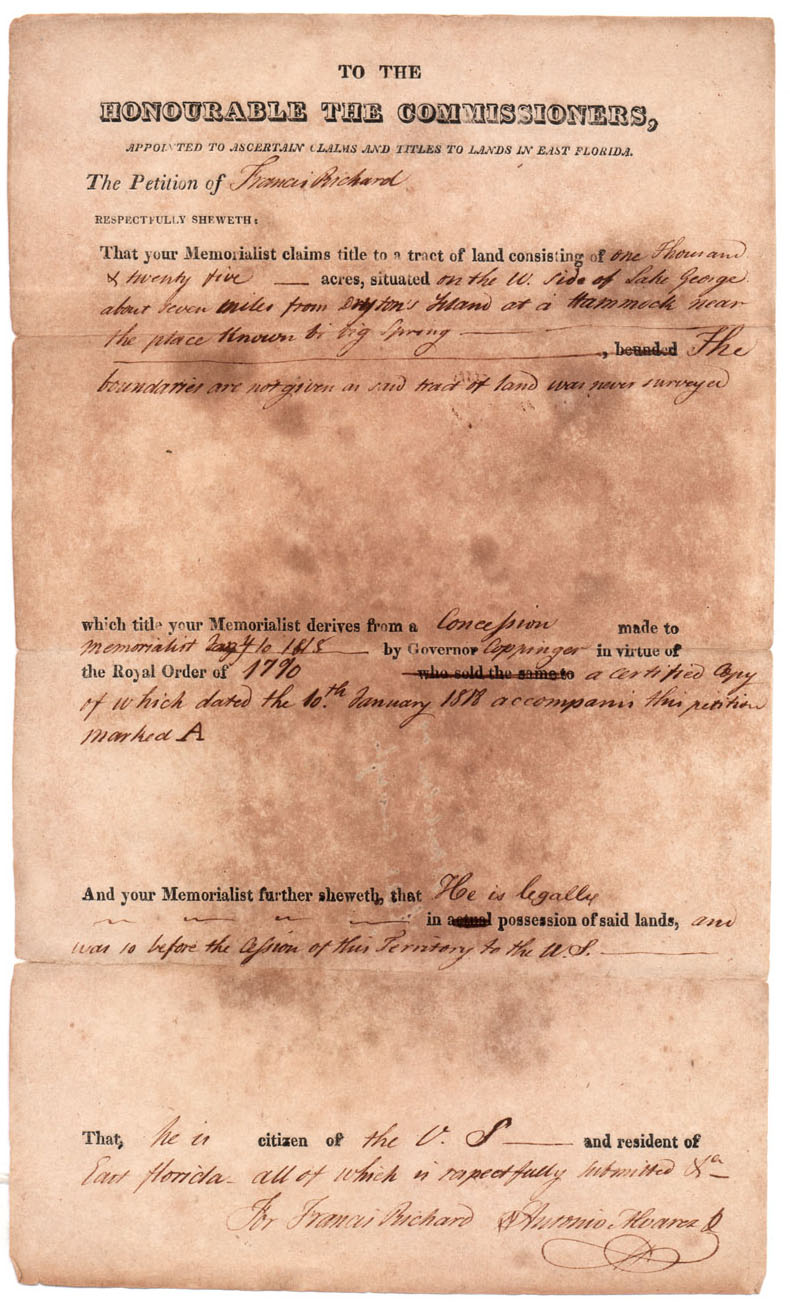 TO THE
HONOURABLE THE COMMISSIONERS,
APPOINTED TO ASCERTAIN CLAIMS AND TITLES TO LANDS IN EAST FLORIDA.
The Petition of Francis Richard
RESPECTFULLY SHEWETH:
That your Memorialist claims title to a tract of land consisting of one Thousand
& twenty five — acres, situated on the W. side of Lake George
about seven miles from Dryton's Island at a Hammock near
the place Known bi big Spring —
, bounded The
boundaries are not given as said tract of land was never surveyed
which title your Memorialist derives from a Concession made to
memorialist 10 1818 by Governor Coppinger in virtue of
the Royal Order of 1790 who sold the same to a certified Copy
of which dated the 10th. January 1818 accompanis this petition
marked A
And your Memorialist further sheweth, that He is legally
in actual possession of said lands, and
was so before the Cession of this Territory to the U.S. —
That, he is citizen of the U. S — and resident of
East florida - all of which is respectfully submitted &a
For Francis Richard Antonio Alvarez